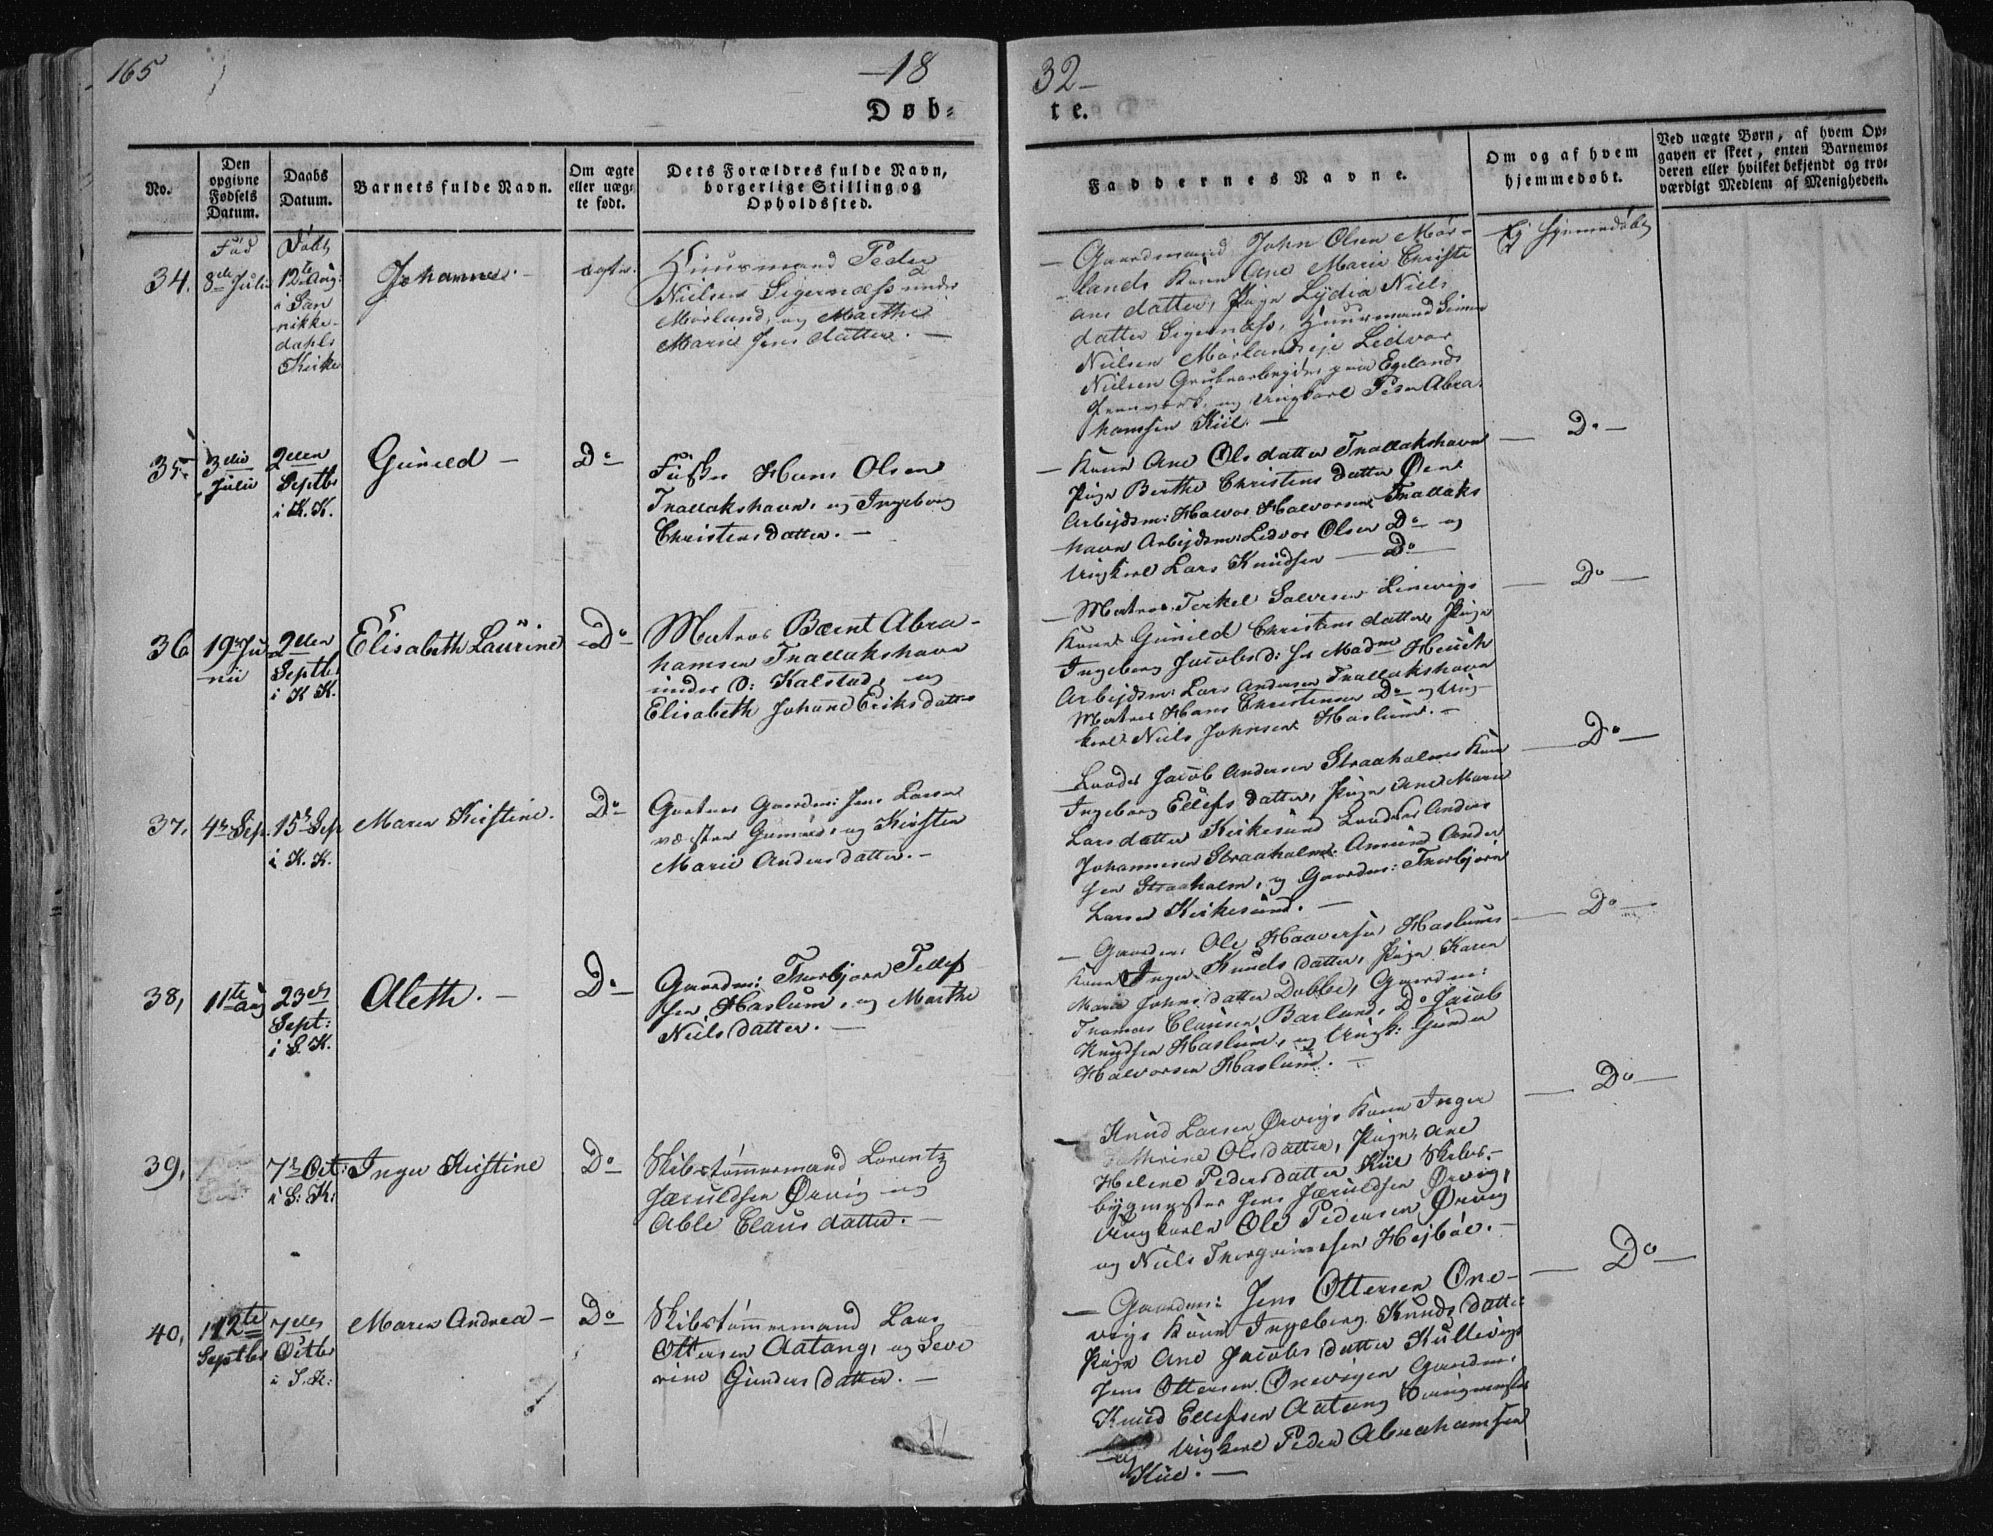 165
18
32
Døb-
te.
No.
Den opgivne Fødsels Datum.
Daabs Datum.
Barnets fulde Navn.
Om ægte eller uægte født.
Dets Forældres fulde Navn, borgerlige Stilling og Opholdssted.
Faddernes Navne.
Om og af hvem hjemmedøbt.
Ved uægte Børn, af hvem Opgaven er skeet, enten Barnemoderen eller hvilket bekjendt og troværdigt Medlem af Menigheden.
34.
Fød
8de Juli
Døbt
12te Aug:
i San
nikke-
dahls
Kirke
Johannes.
ægte.
Huusmand Peder
Nielsen Sigernæss under
Mørland, og Marthe
Marie Jens datter. —
— Gaardmand John Olsen Mør-
lands Kone Ane Marie Christi
ane datter, Pige Lydia Niels
datter Sigernæss, Huusmand Simen
Nielsen Mørlandseje Ledvor
Nielsen Grubearbejder paa Egelands
Jernværk, og Ungkarl Peder Abra
hamsen Kiil. —
Ej hjemmedøbt
35.
3die
Julii
2den
Septbr
i K. K.
Gunild —
Do —
Fisker Hans Olsen
Trallakshavn, og Ingeborg
Christens datter. —
— Kone Ane Ols datter Trallakshavn
Pige Berthe Christens datter Øen
Arbejdsm: Halvor Halvorsen Trallaks
havn Arbejdsm: Ledvor Olsen Do og
Ungkarl Lars Knudsen — Do
— Do —
36
19 Ju
nii
2den
Septbr
i K K.
Elisabeth Laurine
Do
Matros Bernt Abra-
hamsen Trallakshavn
under O: Kalstad, og
Elisabeth Johane Eriks datter
— Matros Terkel Salvesen Linevigs
Kone Gunild Christens datter, Pige
Ingeborg Jacobsd: hos Madme Heuch
Arbejdsm: Lars Andersen Trallakshavn
Matros Hans Christensen Do og Ung
karl Niels Johnsen Haslum. —
— Do —
37,
4 Sep.
15 Sep
i K. K.
Maren Kirstine.
Do
Gaardm: Jens Larsen
og Kirsten
Marie Anders datter. —
Lods Jacob Andersen Straaholmens Kone
Ingeborg Ellefs datter, Pige Ane Marie
Lars datter Kirkesund Lods Anders
Johannesen Straaholm Amund Ander
sen Straaholm, og Gaardm: Thorbjørn
Larsen Kirkesund. —
— Do —
38,
11te Aug
23de
Sept:
i S. K.
Aleth. —
Do —
Gaardm: Thorbjørn Tellef
sen Haslum, og Marthe
Niels datter. —
— Gaardm: Ole Haaversen Haslums
Kone Inger Knuds datter, Pige Karen
Marie Johns datter Dobbe, Gaardm:
Thomas Clausen Barland, Do Jacob
Knudsen Haslum, og Ungk: Gunder
Halvorsen Haslum. —
— Do —
39,
7 Oct:
i S: K:
Inger Kirstine
Do
Skibstømmermand Lorentz
Jæruldsen Ørvig og
Able Claus datter. —
— Knud Larsen Ørvigs Kone Inger
Cathrine Ols datter, Pige Ane
Helene Peders datter Kiil Skibs-
bygmester Jens Jæruldsen Ørvig,
Ungkarle Ole Pedersen Ørvig
og Niels Thorgrimsen Højbøe. —
— Do —
40,
12te
Septbr
7de
Octbr
i S. K:
Maren Andrea —
Do
Skibstømmermand Lars
Ottersen Aatang, og Seve
rine Gunders datter. —
— Gaardm: Jens Ottersen Øne-
vigs Kone Ingeborg Knuds datter
Pige Ane Jacobs datter Kullevigs
Jens Ottersen Ønevigen Gaardm:
Knud Ellefsen Aatang
og Ungkarl Peder Abrahamsen
Kiil. —
— Do —